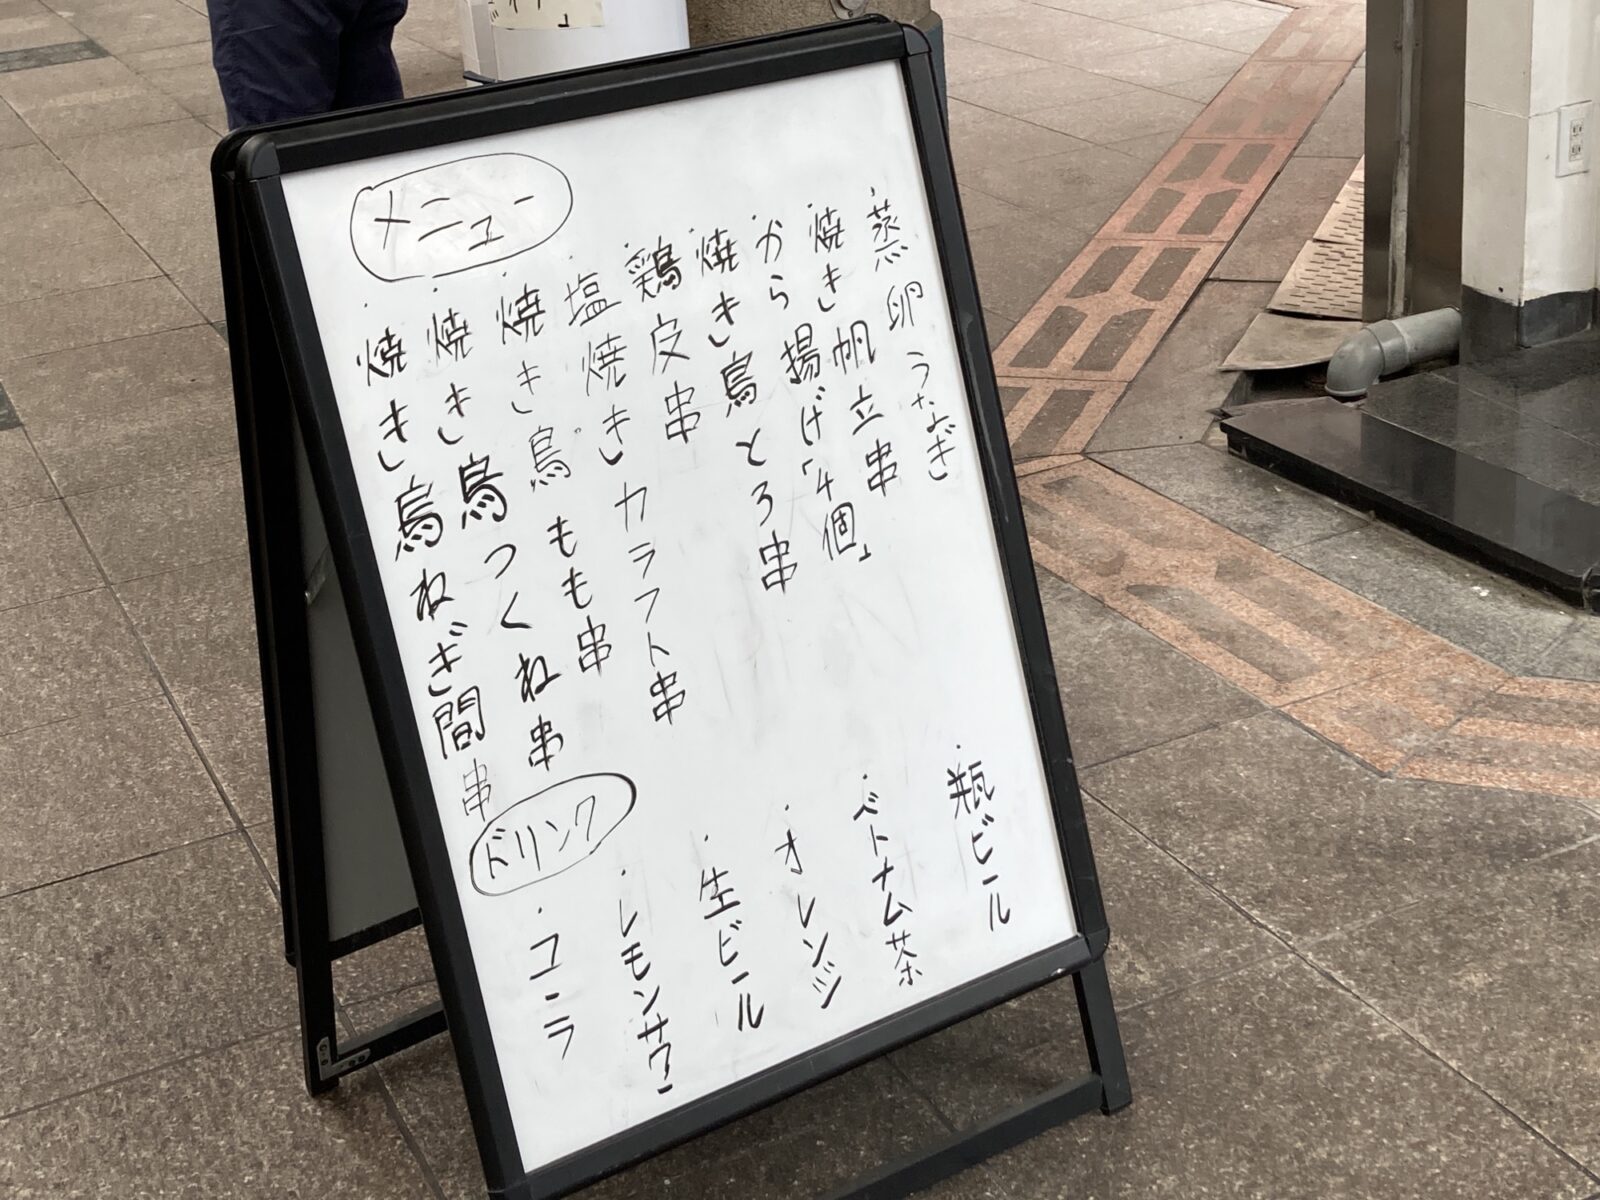 メニュー
・焼き鳥ねぎ間串
・焼き鳥つくね串
・焼き鳥もも串
・塩焼きカラフト串
・鶏皮串
・焼き鳥とろ串
・から揚げ「4個」
・焼き帆立串
・蒸卵うなぎ
ドリンク
・コーラ
・レモンサワー
・生ビール
・オレンジ
・ベトナム茶
・瓶ビール